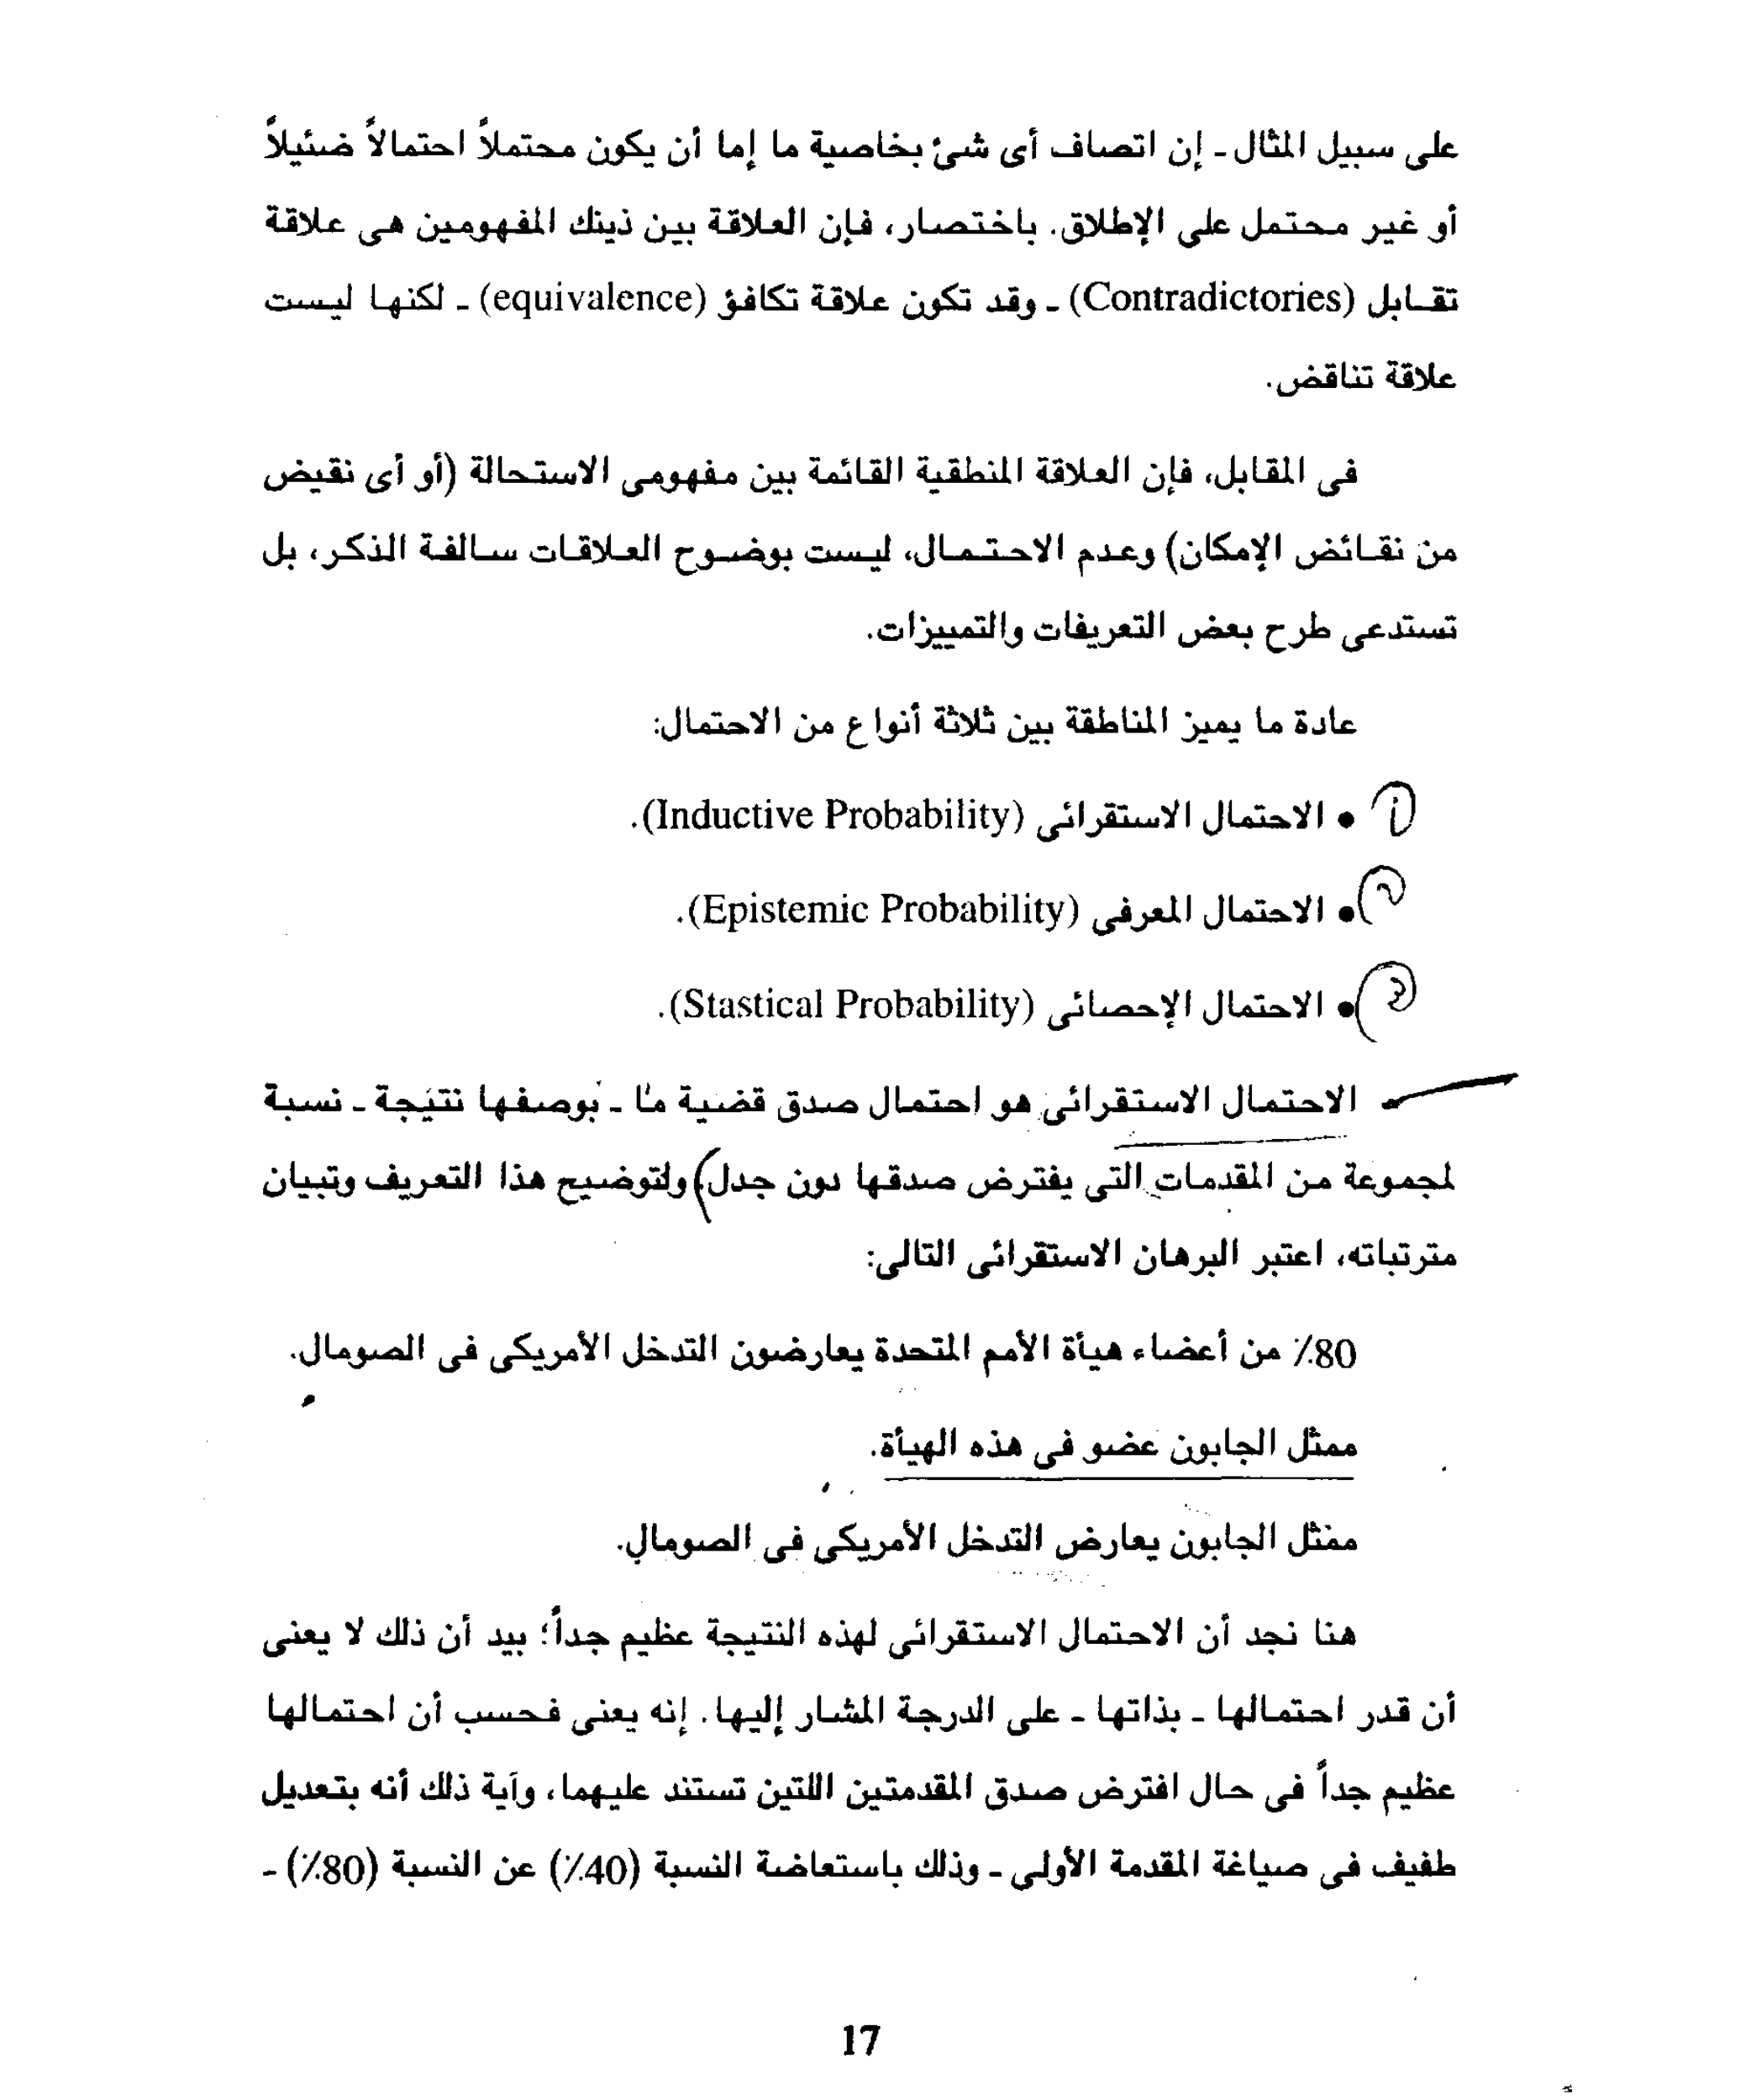 على سبيل المثال ـ إن اتصاف أى شئ بخاصية ما إما أن يكون محتملاً احتمالاً ضئيلاً
أو غير محتمل على الإطلاق. باختصار، فإن العلاقة بين ذينك المفهومين هى علاقة
تقابل (Contradictories) ـ وقد تكون علاقة تكافؤ (equivalence) ـ لكنها ليست
علاقة تناقض.
فى المقابل، فإن العلاقة المنطقية القائمة بين مفهومى الاستحالة (أو أى نقيض
من نقائض الإمكان) وعدم الاحتمال، ليست بوضوح العلاقات سالفة الذكر، بل
تستدعى طرح بعض التعريفات والتمييزات.
عادة ما يميز المناطقة بين ثلاثة أنواع من الاحتمال:
• الاحتمال الاستقرائى (Inductive Probability).
• الاحتمال المعرفى (Epistemic Probability).
• الاحتمال الإحصائى (Stastical Probability).
الاحتمال الاستقرائى هو احتمال صدق قضية ما ـ بوصفها نتيجة ـ نسبة
لمجموعة من المقدمات التى يفترض صدقها دون جدل) ولتوضيح هذا التعريف وتبيان
مترتباته، اعتبر البرهان الاستقرائى التالى:
80٪ من أعضاء هيأة الأمم المتحدة يعارضون التدخل الأمريكى فى الصومال.
ممثل الجابون عضو فى هذه الهيأة.
ممثل الجابون يعارض التدخل الأمريكى فى الصومال.
هنا نجد أن الاحتمال الاستقرائى لهذه النتيجة عظيم جداً؛ بيد أن ذلك لا يعنى
أن قدر احتمالها ـ بذاتها ـ على الدرجة المشار إليها. إنه يعنى فحسب أن احتمالها
عظيم جداً فى حال افترض صدق المقدمتين اللتين تستند عليهما، وآية ذلك أنه بتعديل
طفيف فى صياغة المقدمة الأولى ـ وذلك باستعاضة النسبة (40٪) عن النسبة (80٪) ـ
17